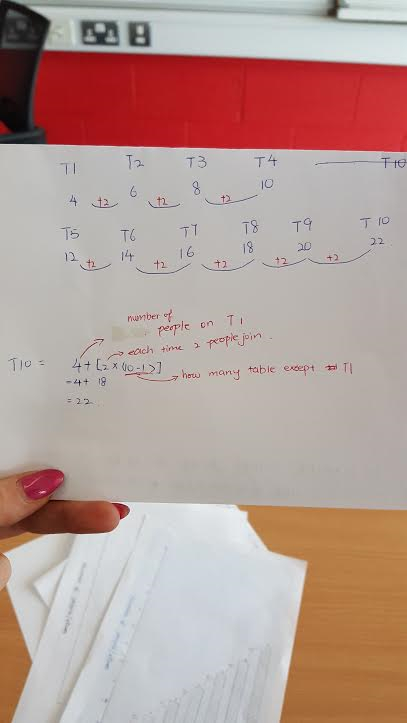 T1 T2 T3 T4 T10
4 +2 6 +2 8 +2 10
T5 T6 T7 T8 T9 T10
12 +2 14 +2 16 +2 18 +2 20 +2 22
number of
people on T1
each time 2 people join.
T10 = 4 + [2 × (10-1)]
how many table except T1
= 4 + 18
= 22.